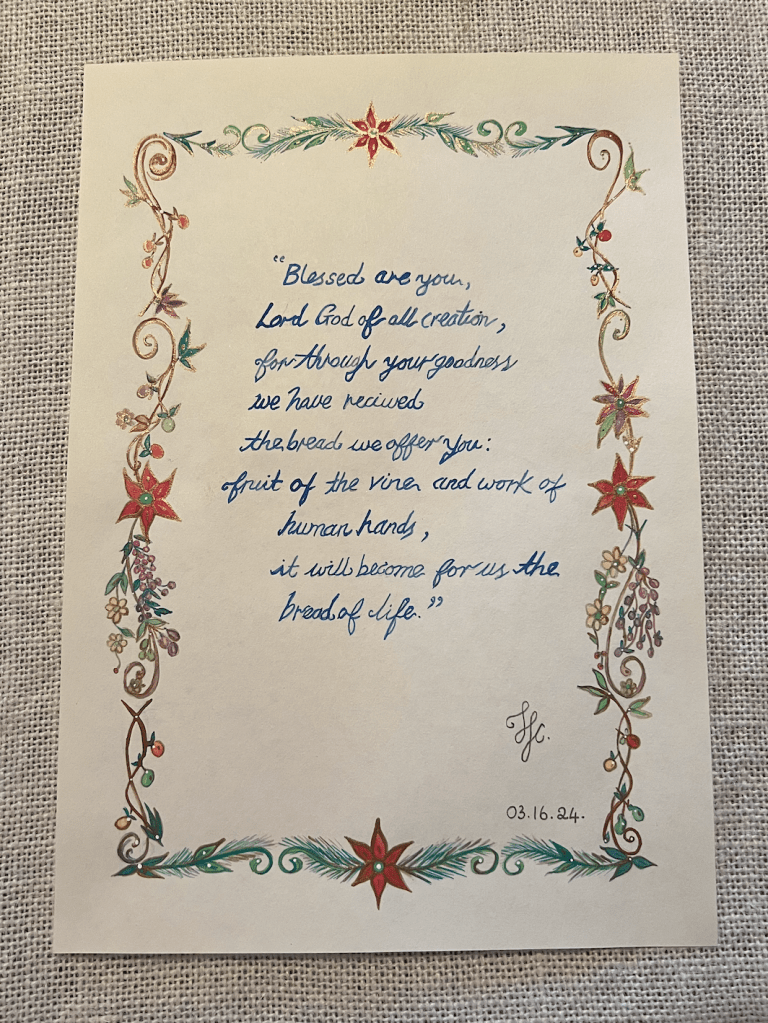 "Blessed are you,
Lord God of all creation,
for through your goodness
we have recived
the bread we offer you:
fruit of the vine and work of
human hands,
it will become for us the
bread of life."
03.16.24.